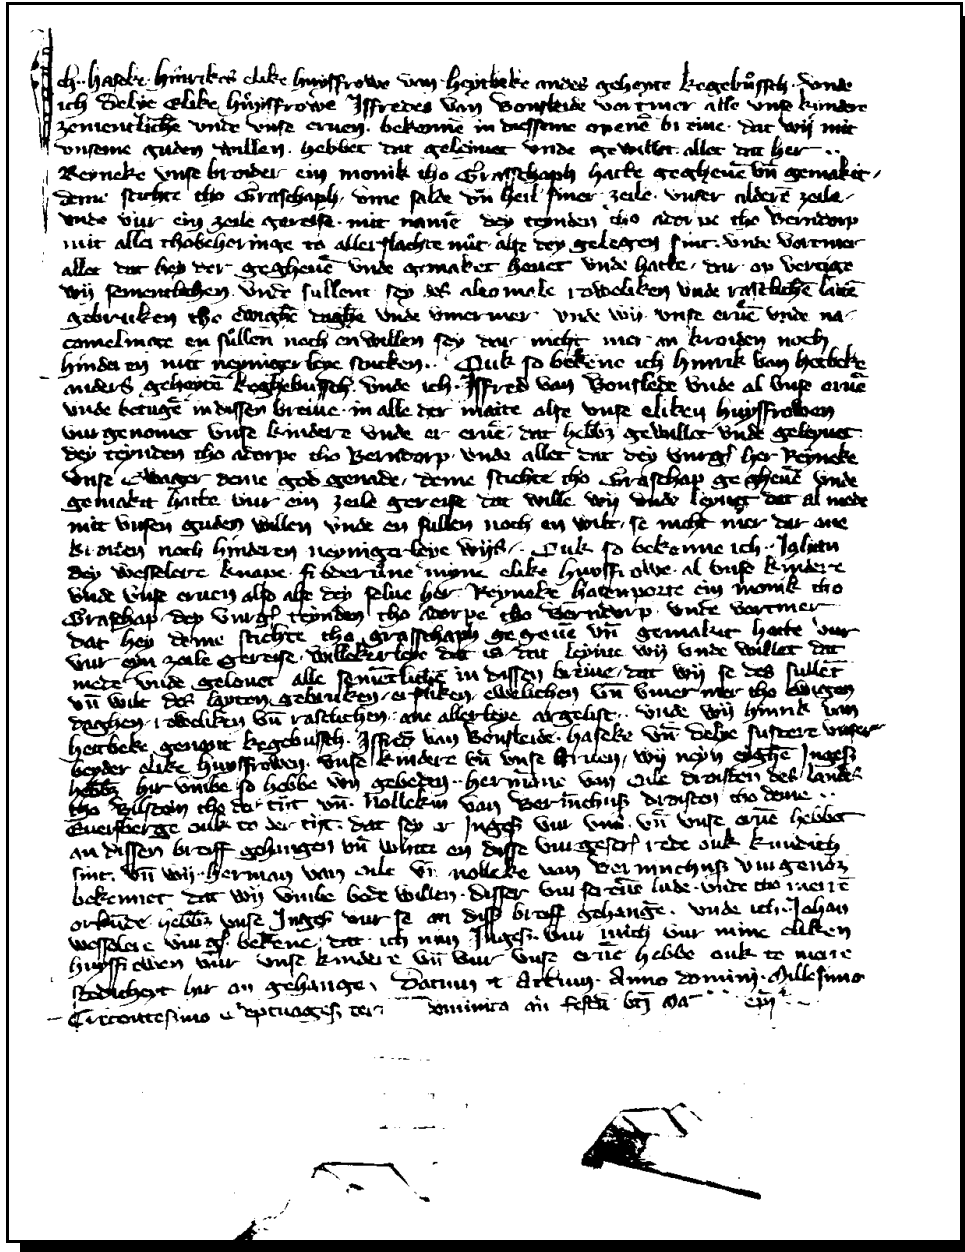 ch haseke hinrikes elike huysfrowe van heytbeke anders geheyte kegebussch vnde
ich Delye Elike huysfrowe Jffredes van Bonslede vortmer alle vnse kindere
zementliche vnde vnse eruen bekenne in diesseme openē breue dat wij mit
vnseme guden willen hebbet dat geleuuet vnde gewillet allet dat her
Reyneke vnse broider ein monik tho Grasschaph hatte geghuē vn̄ gemaket
deme stichte tho Grasschaph vme salde vn̄ heil siner zeile vnser alderē zeile
vnde vur ein zeile gereise mit namē dey teynden tho dorpe tho Berndorp
mit aller thobehoringe to aller slachte nut alse dey gelegen sint vnde vortmer
allet dat hey der gegheuē vnde gemaket heuet vnde hatte dar op vertige
wij sementlichen vnde sullent sey des alremale roweliken vnde rastlichē latē
gebruken tho ewighē daghē vnde vmermer vnde wij vnse eruē vnde na
comelinge en sullen noch en willen sey dar nicht mer an kroiden noch
hinderen mit neynigerleye stucken Ouk so bekēne ich hinrik van heitbeke
anders geheytē keghebussch vnde ich Jffred van Bonslede vnde al vnse eruē
vnde betugē in dissen breiue in alle der maite alse vnse eliken huysfrowen
vurgenomet vnse kindere vnde er eruē dat hebbȝ gewillet vnde geleyuet
dey teynden tho dorpe tho Berndorp vnde allet dat dey vurgs her Reyneke
vnse swager deme god genade deme stichte tho Graschap gegheuē vnde
gemaket hatte vur ein zeile gereise dat wille wij vnde leyuet dat al mede
mit vnsen guden willen vnde en sullen noch en wilt se nicht mer dar ane
kroiden noch hinderen neynigerleye wijs Ouk so bekenne ich Johan
dey wesselere knape myne elike huysfrowe al vnse kindere
vnde vnse eruen also alse dey selue her Reyneke hauenporte ein monik tho
Graschap dey vurgs teynden tho dorpe tho Berndorp vnde vortmer
dat hey deme stichte tho grasschaph gegeuē vn̄ gemaket hatte vur
vur eyn zeile gereise dat is dat leyuue wij vnde willet dat
mede vnde gelouet alle semetlichē in dissen breiue dat wij se des sullet
vn̄ wilt des layten gebruken eweliken vn̄ vmermer tho ewigen
daghen roweliken vn̄ rastlichen ane allerleye argelist vnde wij hinrik van
heitbeke genant kegebussch Jffred van Bonsleide haseke vn̄ Delye sustere vnser
beyder elike huysfrowen vnse kindere vn̄ vnse Eruen wij neyn eighē Jngess
hebbȝ hir vmbe so hebbe wij gebeden hermāne van Ole droisten des landes
tho Bilstein tho der tijt vn̄ Nolleken van Berninchuss droisten tho deme
Euersberge ouk to der tijt dat sey er Jngess vur vns vn̄ vnse eruē hebbet
an dissen breiff gehangen vn̄ rede ouk kundich
sint vn̄ wij herman van Ole vn̄ nolleke van Berninchuss vurgenoȝ
bekennet dat wij vmbe bede willen disser lude vnde tho merē
orkude hebbȝ vnse Jngess vur se an diss breff gehangē vnde ich Johan
wesselere vurgs bekene dat ich min Jngess vur mich vur mine eliken
huysfrowen vur vnse kindere vn̄ vur vnse eruē hebbe ouk to mere
stedicheyt hir an gehange Datum et Actum Anno domini Millesimo
Tricentesimo Septuages dominica an festū bti epi